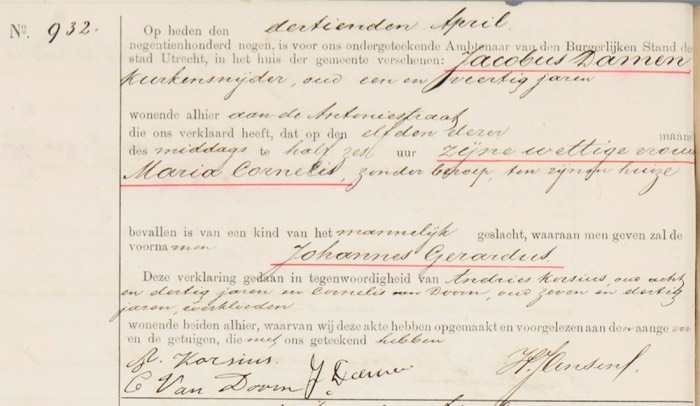 No. 932.
Op heden den dertienden April
negentienhonderd negen, is voor ons ondergeteekende Ambtenaar van den Burgerlijken Stand de
stad Utrecht, in het huis der gemeente verschenen: Jacobus Damen
kurkensnijder, oud een en veertig jaren
wonende alhier aan de Antoniestraat
die ons verklaard heeft, dat op den elfden dezer maand
des middags te half zes uur zijne wettige vrouw
Maria Cornelis, zonder beroep, ten zijnen huize
bevallen is van een kind van het mannelijk geslacht, waaraan men geven zal de
voornamen Johannes Gerardus.
Deze verklaring gedaan in tegenwoordigheid van Andries Korsius, oud acht
en dertig jaren en Cornelis van Doorn, oud zeven en dertig
jaren, werklieden
wonende beiden alhier, waarvan wij deze akte hebben opgemaakt en voorgelezen aan den aangever
en de getuigen, die met ons geteekend hebben
A. Korsius. H. Jansen
C Van Doorn J Damen